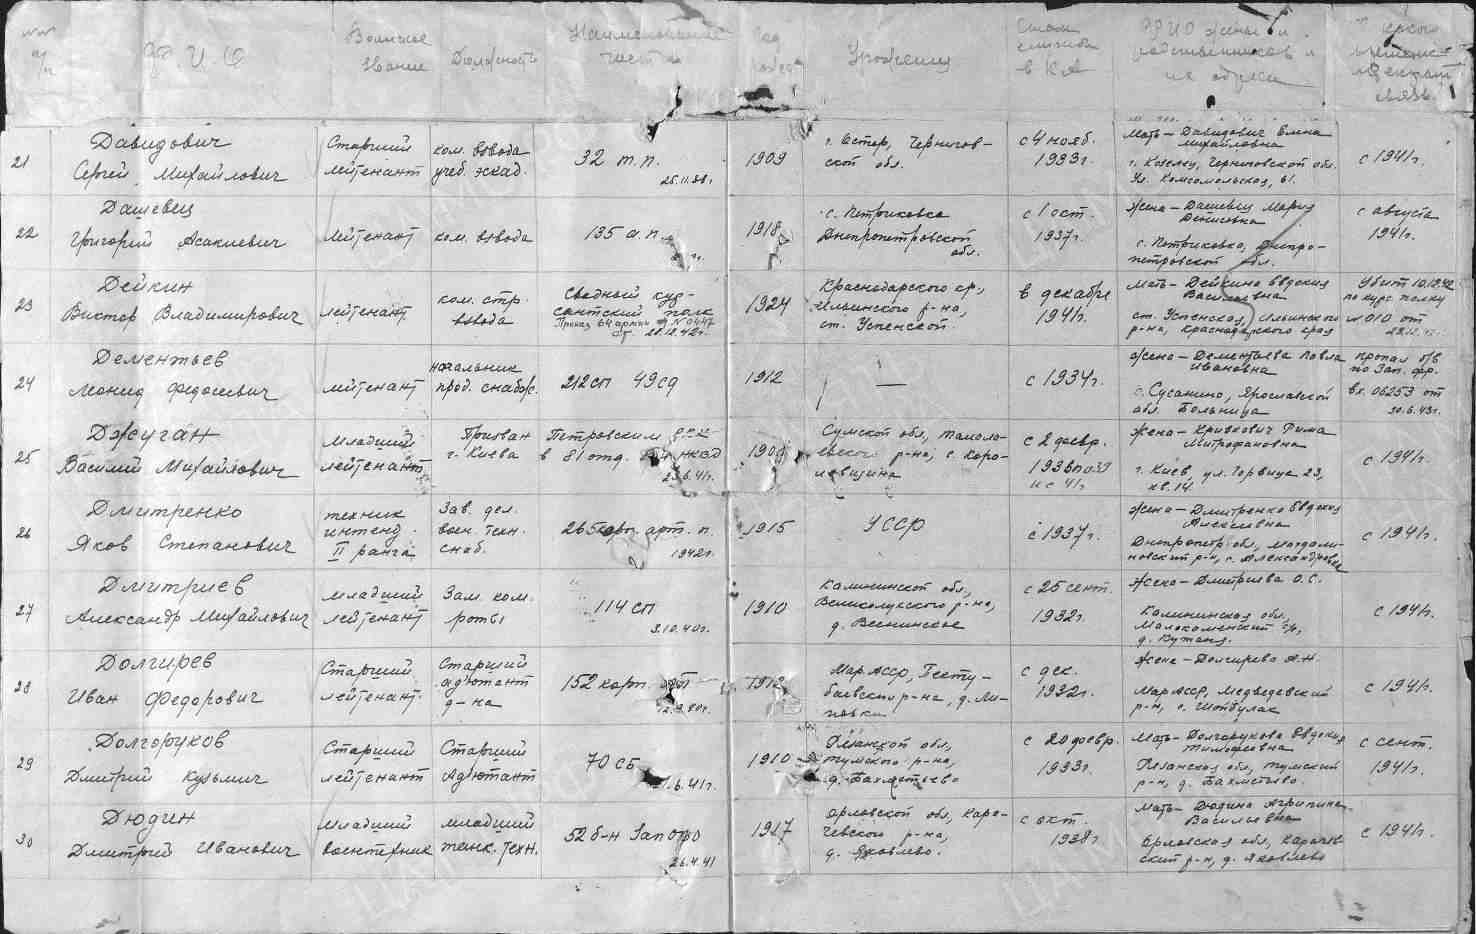 №№ п/п
Ф. И. О
Воинское звание
Должность
Наименование части
Год
Урожениц
Стаж службы в КА
ФИО жены и родственников и их адреса
21
Давидович
Сергей Михайлович
Старший
лейтенант
ком. взвода
учеб. эскад.
32 т.п.
1909
г. Остер, Чернигов-
ской обл.
с 4 нояб.
1933г.
Мать – Давидович Елена
Михайловна
г. Козелец, Черниговской обл.
Ул. Комсомольская, 61.
с 1941г.
22
Дашевец
Григорий Асакиевич
лейтенант
ком. взвода
135 а.п.
1918
с. Петриковка
Днепропетровской
обл.
с 1 окт.
1937г.
Жена – Дашевец Мария
Денисовна
с. Петриковка, Днепро-
петровской обл.
с августа
1941г.
23
Дейкин
Виктор Владимирович
лейтенант
ком. стр.
взвода
Сводный кур-
сантский полк
Приказ 64 армии № 0447
от 28.12.42г.
1924
Краснодарского кр,
Ильинского р-на,
ст. Успенской
в декабре
1941г.
Мать – Дейкина Евдокия
Васильевна
ст. Успенская, Ильинского
р-на, Краснодарского края
Убит 10.12.42
по курс. полку
№ 010 от
24
Дементьев
Леонид Федосеевич
лейтенант
начальник
прод. снабж.
212 сп 49 сд
1912
—
с 1934г.
Жена – Дементьева Павла
Ивановна
с. Сусанино, Ярославской
обл. Больница
пропал б/в
по Зап. фр.
вх. 06253 от
30.6.43г.
25
Джуган
Василий Михайлович
Младший
лейтенант
Призван Петровским РВК
г. Киева в 81 отд. НКВД
23.6.41г.
Сумской обл,
р-на, с. Коро-
левщина
с 2 февр.
1936 по 39
и с 41г.
Жена – Кривкович Рима
Митрофановна
г. Киев, ул. Горвица 23,
кв. 14.
с 1941г.
26
Дмитренко
Яков Степанович
техник
интенд.
II ранга
Зав. дел.
воен. техн.
снаб.
265 корп. арт. п.
1942г.
1915
УССР
с 1937г.
Жена – Дмитренко Евдокия
Алексеевна
Днепропетр. обл, Магдали-
новский р-н, с. Александровка
с 1941г.
27
Дмитриев
Александр Михайлович
Младший
лейтенант
Зам. ком.
роты
114 сп
3.10.40г.
1910
Калининской обл,
Великолукского р-на,
д. Веснинское
с 25 сент.
1932г.
Жена – Дмитриева О.С.
Калининская обл,
с/с,
д. Кутань.
с 1941г.
28
Долгирев
Иван Федорович
Старший
лейтенант.
Старший
адъютант
д-на
152 корп.
12.9.40г.
1912
Мар АССР, Пекту-
баевского р-на, д. Ли-
повки
с дек.
1932г.
Жена – Долгирева А.Н.
Мар АССР, Медведевский
р-н, с. Шойбулак
с 1941г.
29
Долгоруков
Дмитрий Кузьмич
Старший
лейтенант
Старший
Адъютант
70 СБ
1910
Рязанской обл,
Тумского р-на,
д. Бахметьево
с 20 февр.
1933г.
Мать – Долгорукова Евдокия
Тимофеевна
Рязанская обл, Тумский
р-н, д. Бахметьево.
с сент.
1941г.
30
Дюдин
Дмитрий Иванович
Младший
воентехник
младший
танк. техн.
52 б-н ЗапОВО
26.4.41
1917
Орловской обл, Кара-
чевского р-на,
д. Яковлево.
с окт.
1938г
Мать – Дюдина Агрипина
Васильевна
Орловская обл, Карачев-
ский р-н, д. Яковлево
с 1941г.